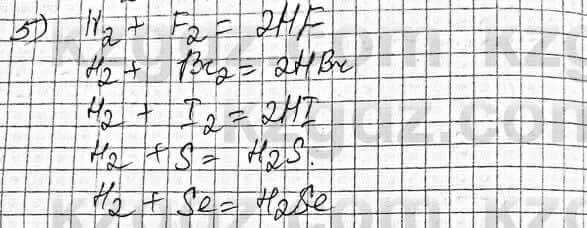 5) H₂ + F₂ = 2HF
H₂ + Br₂ = 2HBr
H₂ + I₂ = 2HI
H₂ + S = H₂S.
H₂ + Se = H₂Se